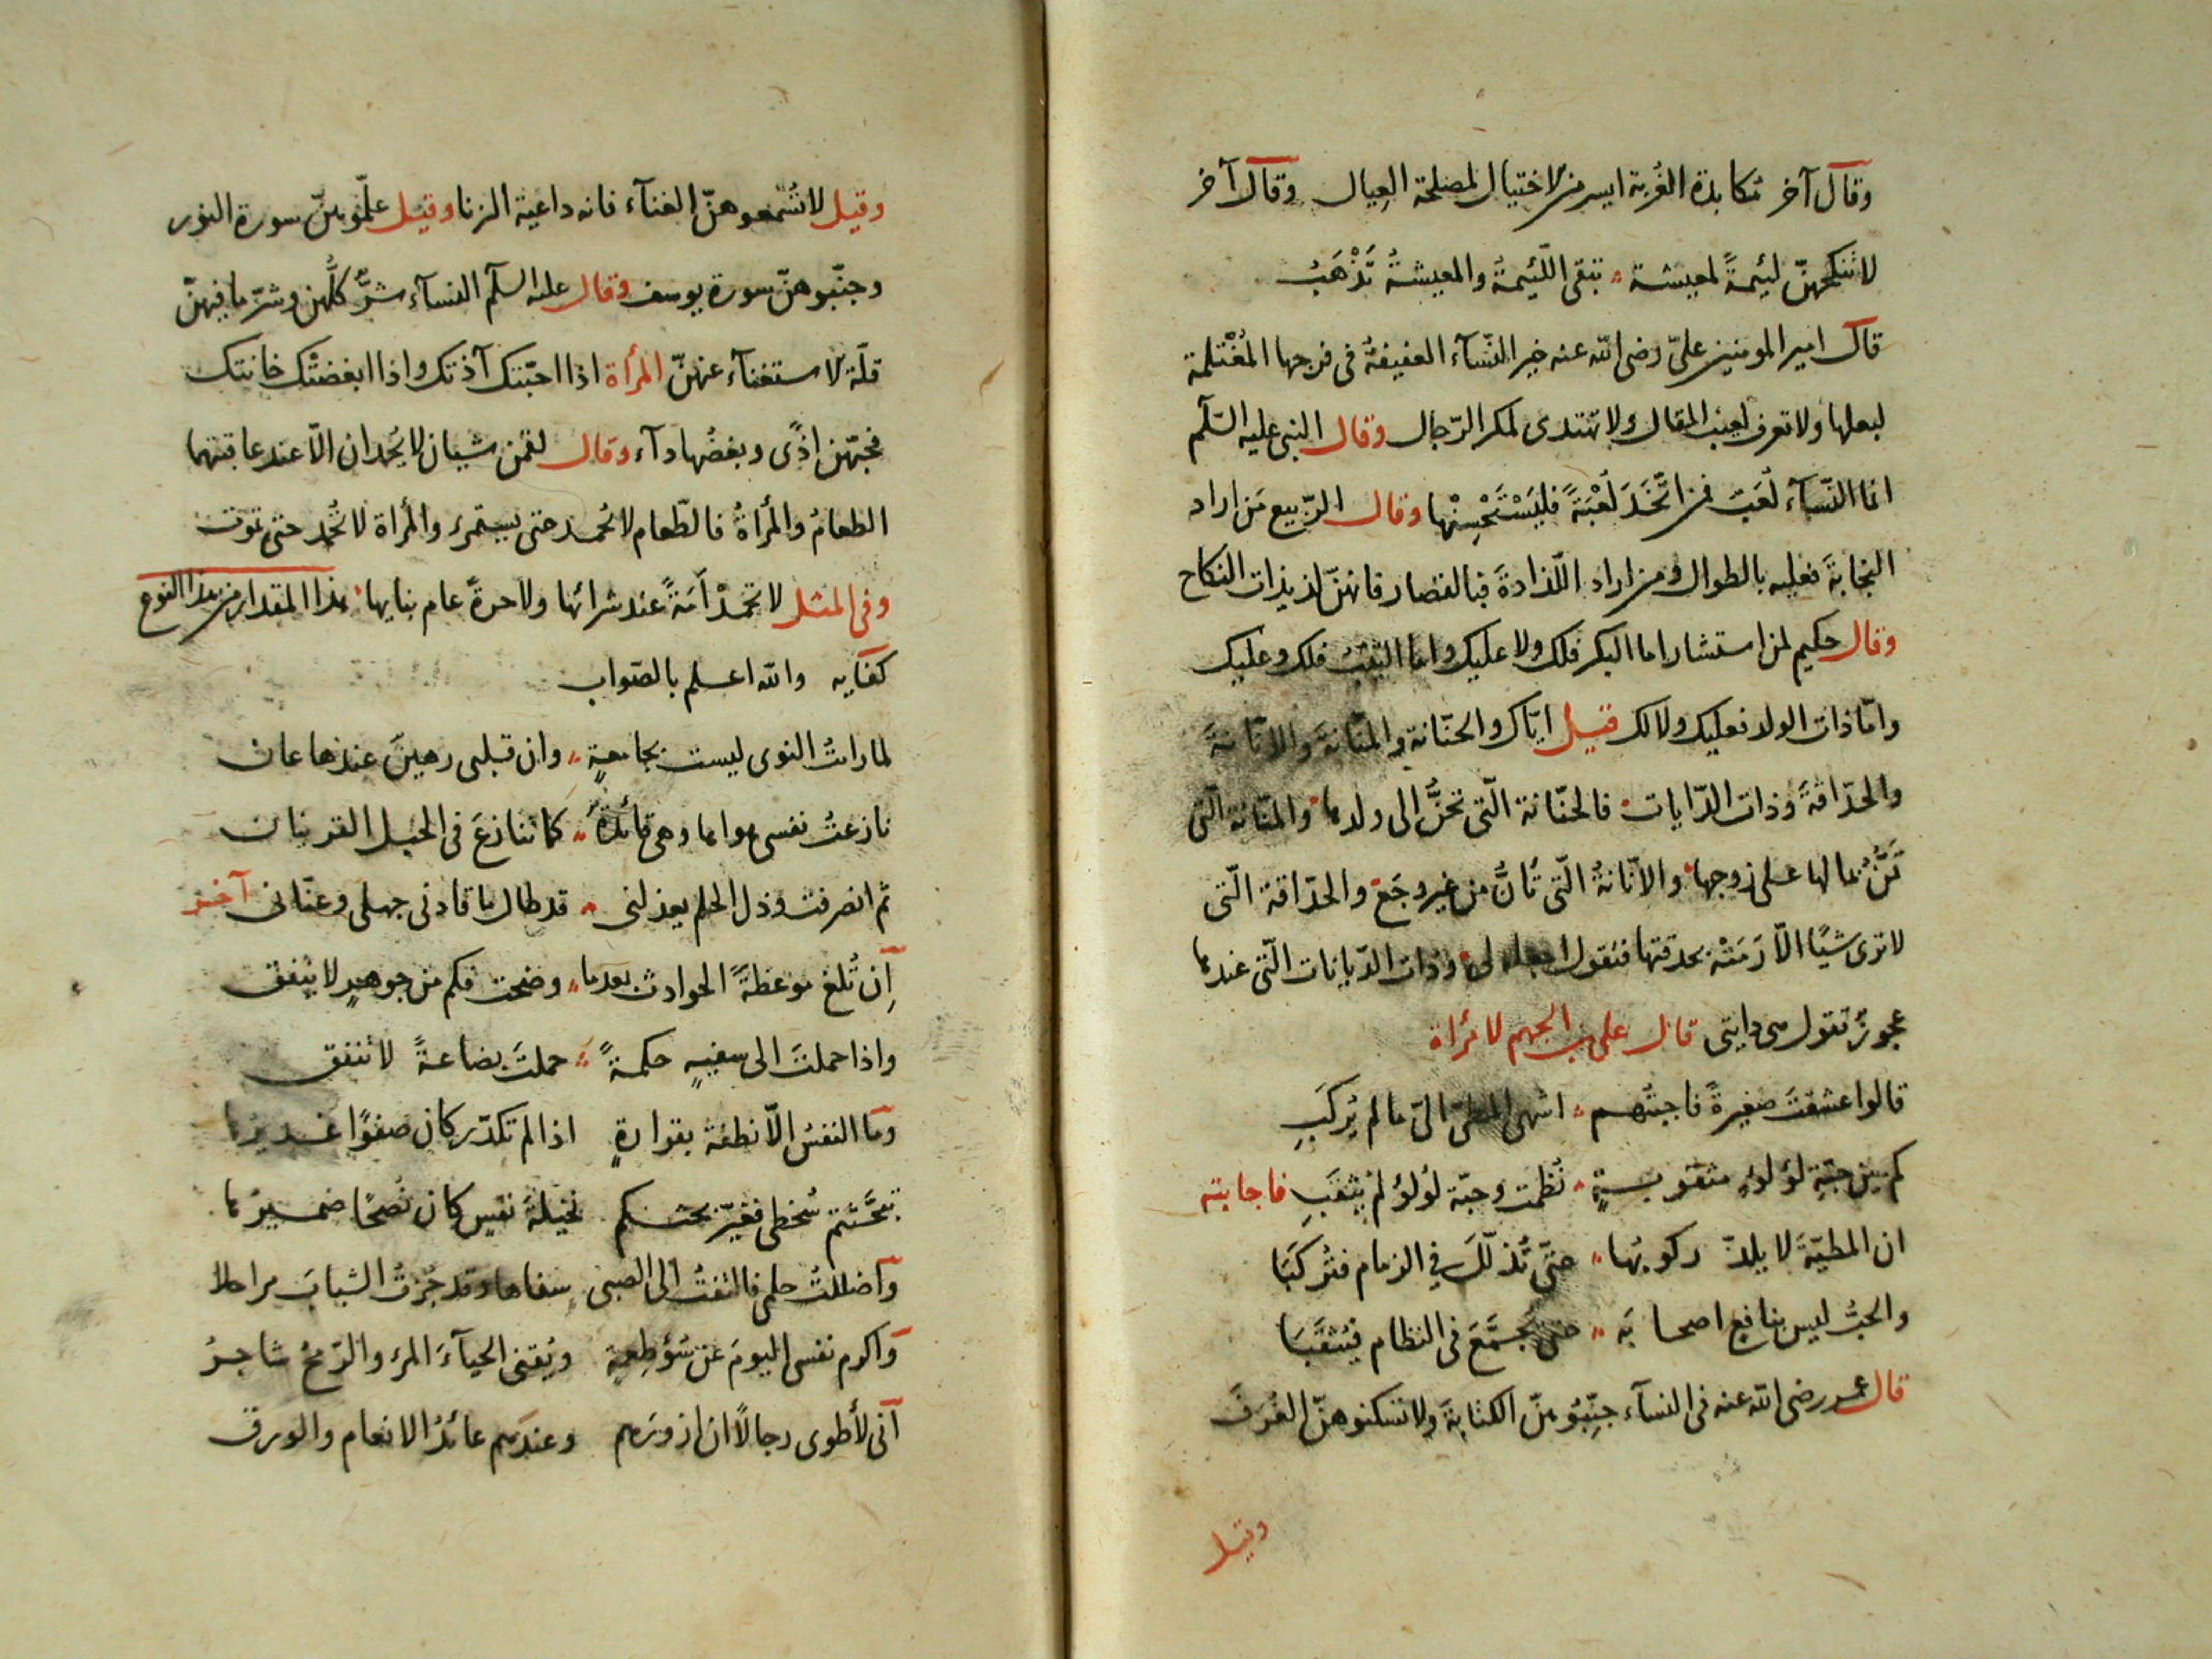 وقال آخر مكابدة الغُربة ايسر من الاختيال لمصلحة العِيال وقال آخر
لا تنكحهنّ لئيمةً لمعيشة تبقى اللّئيمةُ والمعيشةُ تَذْهَبُ
قال امير المومنين علىّ رضى الله عنه خير النّسآء العفيفةُ فى فرجها المُغْتلمة
لبعلها ولا تعرف لعيب المقال ولا تهتدى لمكر الرّجال وقال النبى عليه السّلم
انما النّسآء لُعَبٌ فمن اتّخَذَ لُعْبَةً فليَسْتَحْسِنْها وقال الرّبيع مَن اراد
النجابةَ فعليه بالطوال ومن اراد اللّذاذةَ فبالقصار فانهنّ لذيذات النكاح
وقال حكيم لمن استشار اما البكر فلك ولا عليك واما الثيّبُ فلك وعليك
وامّا ذات الولد فعليك ولا لك قيل ايّاك والحنّانة والمنّانةَ والانّانةَ
والحدّاقةَ وذات الدّايات فالحنّانة الّتى تحنُّ الى ولدها والمنّانة الّتى
تَمُنُّ بمالها على زوجها والانّانةُ الّتى تَانُّ من غير وجَع والحدّاقة الّتى
لا ترى شيًا الّا رَمَتْه بحدقتها فتقول لى وذات الدّيانات الّتى عندها
عجوزٌ تقول هى دايتى قال على بن الجهم لامرأة
قالوا عشقتَ صغيرةً فاجبتُهم اشهى المطىّ الىّ ما لم يُركَبِ
كم بين حبّةِ لؤلؤٍ مثقوبةٍ نُظمت وحبّة لؤلؤ لم يثقَبِ فاجابته
ان المطيّةَ لا يلذّ ركوبُها حتّى تُذلّلَ فى الزمام فتُركَبَا
والحبُّ ليس بنافع اصحابَه حتى يجَمَّعَ فى النظام فيُثقَّبَا
قال عمر رضى الله عنه فى النسآء جنِّبُوهنّ الكتابةَ ولا تسكنوهنّ الغُرَفَ
وقيل
وقيل لا تُسْمعوهنّ الغنآء فانه داعية الزنا وقيل علّموهنّ سورة النور
وجنّبوهنّ سورة يوسف وقال عليه السلم النسآء شرٌّ كلُّهن وشرّ ما فيهنّ
قلّة الاستغنآء عنهنّ المرأة اذا احبّتك آذتك واذا ابغضتْك خانتك
فحبّهن اذًى وبغضُها دآء وقال لقمن شيان لا يُحمدان الّا عند عاقبتهما
الطعامُ والمرأةُ فالطّعام لا يُحمد حتى يستمرء والمرأة لا تُحمد حتى تموت
وفى المثل لا تحمدْ اَمَةً عند شرائها ولا حرةً عام بنايها هذا المقدار من هذا النوع
كفايه والله اعلم بالصّواب
لما رات النوى ليست بجامعةٍ وان قلبى رهينَ عندها عان
نازعتُ نفسى هواها وهى قائدةٌ كما تنازعَ فى الحبل القرينان
ثم انصرفت وذل الحلم يعذلنى قد طال ما قادنى جهلى وعنّانى آخر
اِن تُلغ موعظةً الحوادث بعدما وضحت فكم من جوهرٍ لا يُنفق
واذا حملتَ الى سفيهٍ حكمةً حملتَ بضاعةً لا تنفق
وما النفسُ الّا نطفة بقرارةٍ اذا لم تكدّر كان صفوًا غديرها
تبحَّثتم سُخطى فغيّر بحثكم نخيلةَ نفسٍ كان نُصحًا ضميرُها
وأضللتُ حلمى فالتفتُ الى الصبى سفاها وقد جُزتُ الشبابَ مراحلا
وأكرم نفسى اليومَ عن سُؤ طِعمةٍ ويُقنى الحيآءَ المرء والرّمحُ شاجرُ
آنى لأطوى رجالًا ان ازورَهم وعندَهم عائدُ الانعام والورق